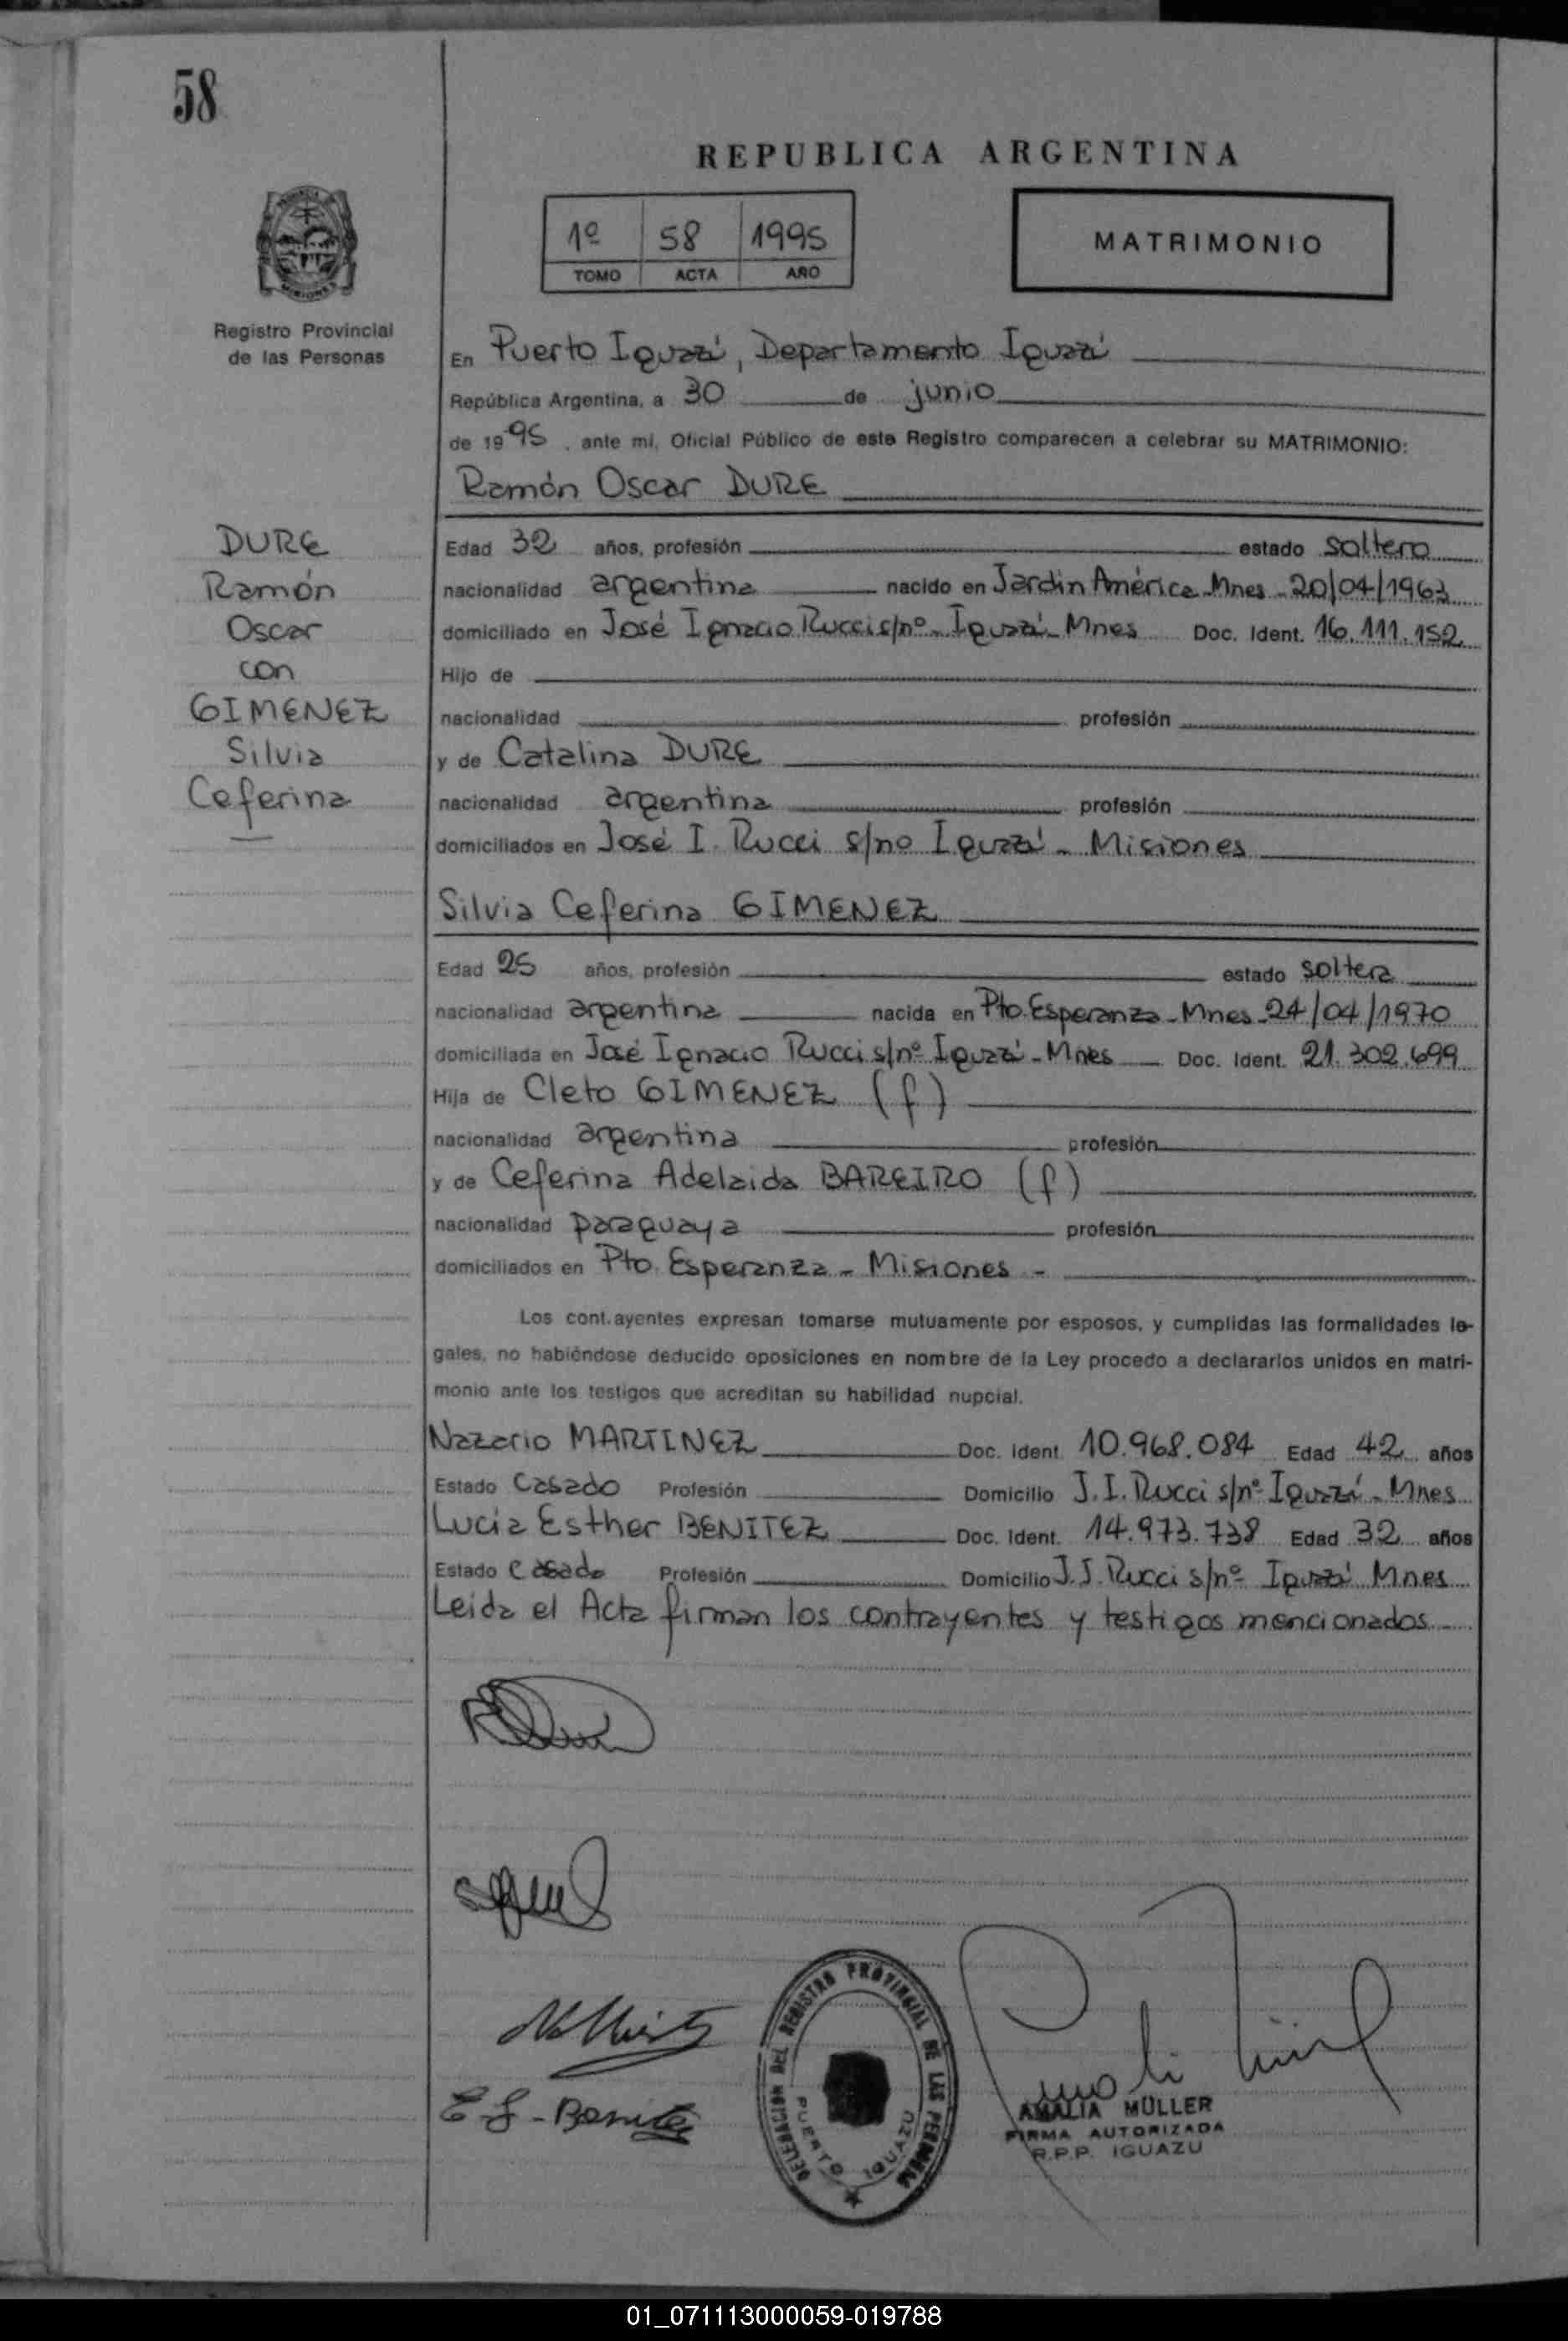 58
REPUBLICA ARGENTINA
1º 58 1995
TOMO ACTA AÑO
MATRIMONIO
Registro Provincial
de las Personas
En Puerto Iguazú, Departamento Iguazú
República Argentina, a 30 de junio
de 1995, ante mi, Oficial Público de este Registro comparecen a celebrar su MATRIMONIO:
Ramón Oscar DURE
DURE
Ramón
Oscar
con
GIMENEZ
Silvia
Ceferina
Edad 32 años, profesión estado soltero
nacionalidad argentina nacido en Jardin América - Mnes - 20/04/1963
domiciliado en José Ignacio Rucci s/nº - Iguazú - Mnes Doc. Ident. 16.111.152
Hijo de
nacionalidad profesión
y de Catalina DURE
nacionalidad argentina profesión
domiciliados en José I. Rucci s/nº Iguazú - Misiones
Silvia Ceferina GIMENEZ
Edad 25 años, profesión estado soltera
nacionalidad argentina nacida en Pto. Esperanza - Mnes - 24/04/1970
domiciliada en José Ignacio Rucci s/nº Iguazú - Mnes Doc. Ident. 21.302.699
Hija de Cleto GIMENEZ (f)
nacionalidad argentina profesión
y de Ceferina Adelaida BAREIRO (f)
nacionalidad paraguaya profesión
domiciliados en Pto. Esperanza - Misiones -
Los cont.ayentes expresan tomarse mutuamente por esposos, y cumplidas las formalidades le-
gales, no habiéndose deducido oposiciones en nombre de la Ley procedo a declararlos unidos en matri-
monio ante los testigos que acreditan su habilidad nupcial.
Nazario MARTINEZ Doc. Ident. 10.968.084 Edad 42 años
Estado Casado Profesión Domicilio J.I. Rucci s/nº Iguazú - Mnes
Lucía Esther BENITEZ Doc. Ident. 14.973.738 Edad 32 años
Estado Casado Profesión Domicilio J.I. Rucci s/nº Iguazú Mnes
Leída el Acta firman los contrayentes y testigos mencionados
E. L. - Benitez
DELEGACION DEL REGISTRO PROVINCIAL DE LAS PERSONAS
PUERTO IGUAZU
AMALIA MÜLLER
FIRMA AUTORIZADA
R.P.P. IGUAZU
01_071113000059-019788